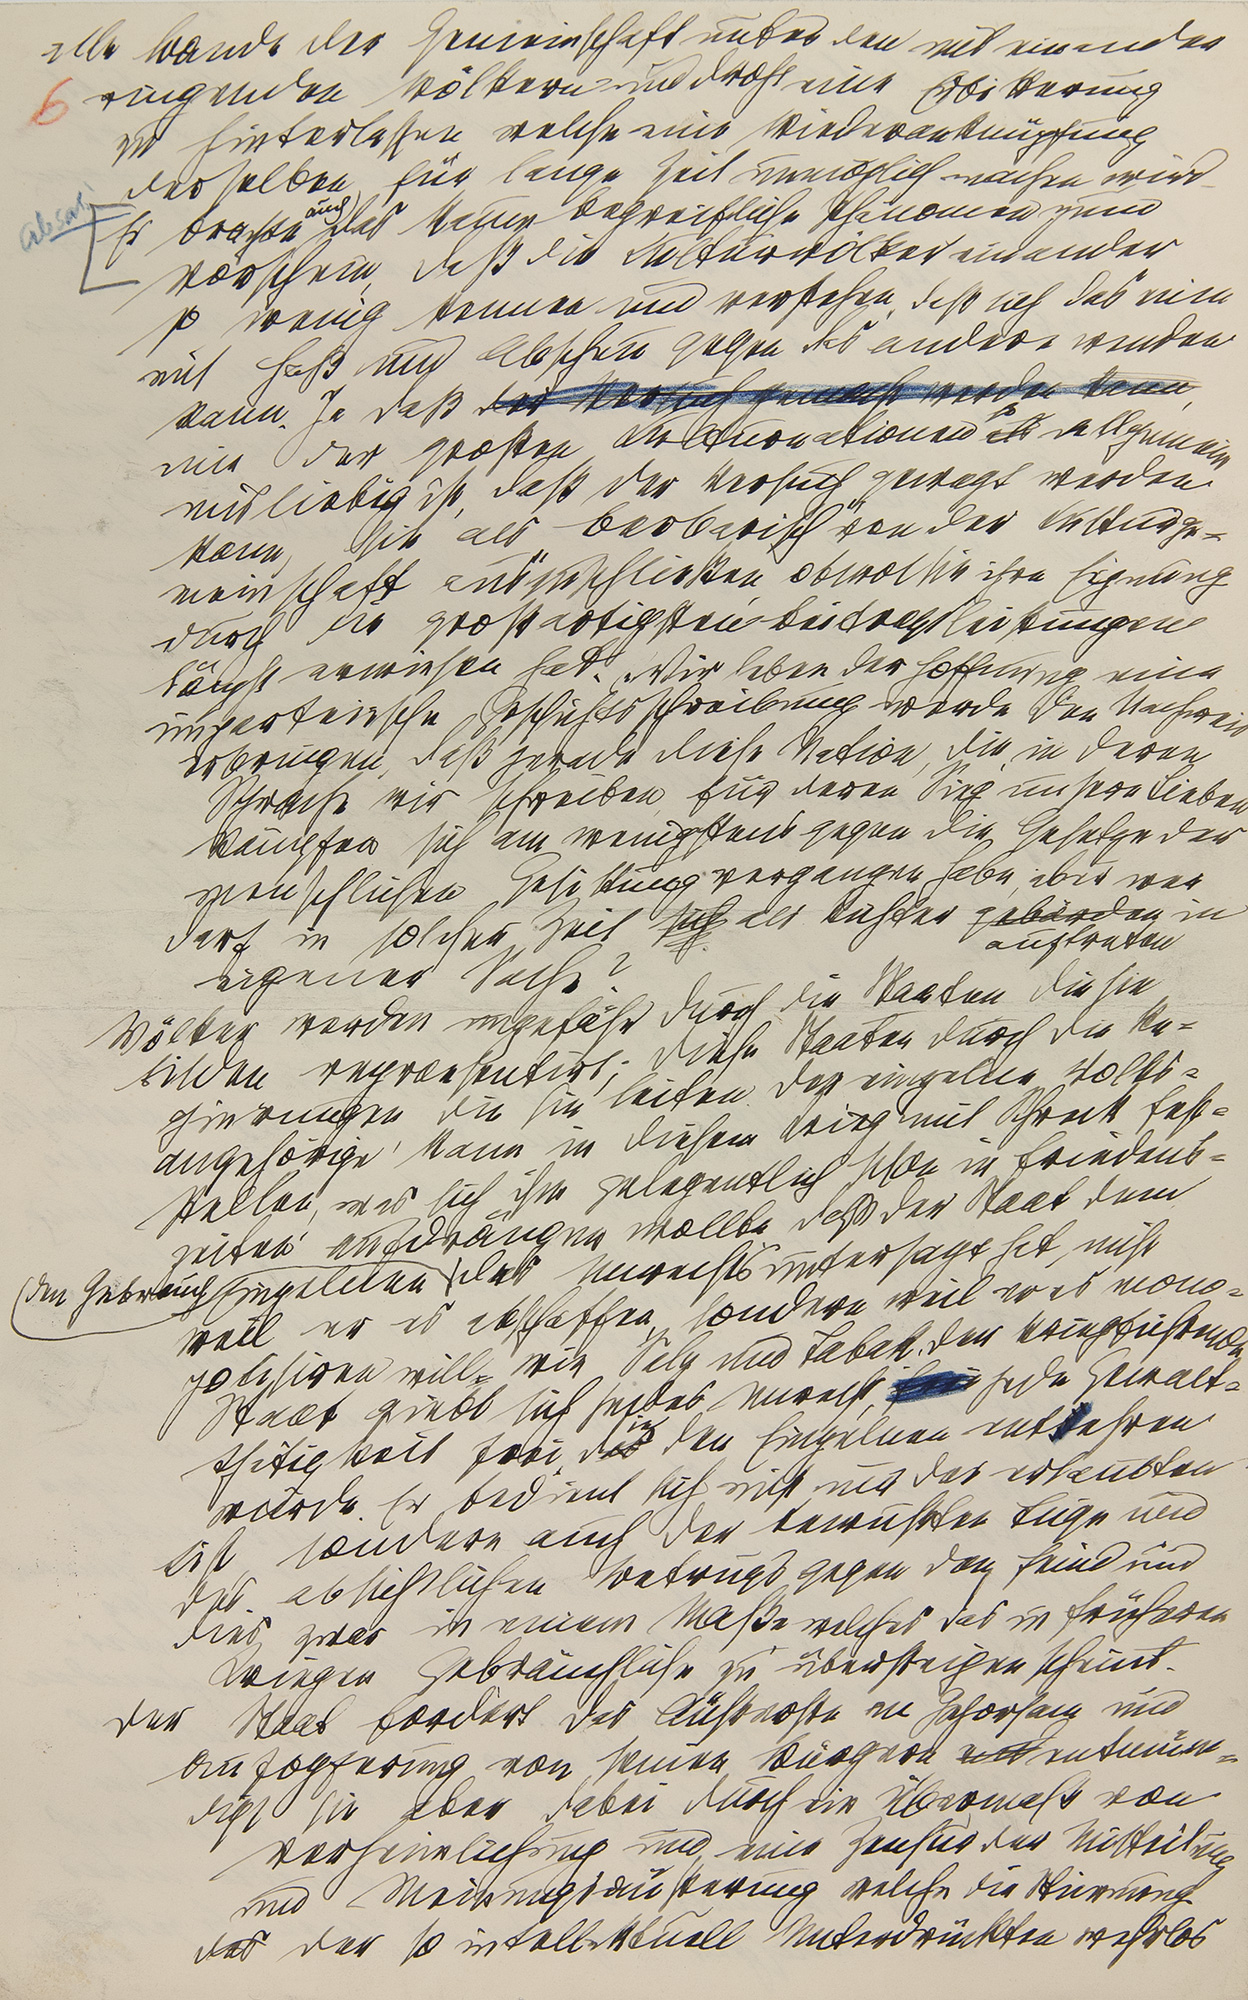 alle Bande der Gemeinschaft unter den mit einander
6 ringenden Völkern und droht eine Erbitterung
zu hinterlassen welche eine Wiederanknüpfung
derselben für lange Zeit unmöglich machen wird
Absatz Er brachte auch das kaum begreifliche Phänomen zum
Vorschein, daß die Kulturvölker einander
so wenig kennen und verstehen, daß sich das eine
mit Haß und Abscheu gegen das andere wenden
kann. Ja daß der Versuch gemacht werden kann,
eine der großen Kulturnationen so allgemein
mißliebig ist, daß der Versuch gewagt werden
kann, sie als "barbarisch" von der Kulturge=
meinschaft auszuschließen, obwol sie ihre Eignung
durch die großartigsten Beitragsleistungen
längst erwiesen hat. Wir leben der Hoffnung, eine
unparteiische Geschichtsschreibung werde den Nachweis
erbringen, daß gerade diese Nation, die, in deren
Sprache wir schreiben, für deren Sieg unsere Lieben
kämpfen sich am wenigstens gegen die Gesetze der
menschlichen Gesittung vergangen habe, aber wer
darf in solcher Zeit sich als Richter gebärden in
auftreten
eigener Sache?
Völker werden ungefähr durch die Staaten die sie
bilden repraesentirt; diese Staaten durch die Re=
gierungen die sie leiten. Der einzelne Volks=
angehörige kann in diesem Krieg mit Schreck fest=
stellen, was sich ihm gelegentlich schon in Friedens=
zeiten aufdrängen wollte daß der Staat dem
(den Gebrauch Einzelnen des Unrechts untersagt hat, nicht
weil er es abschaffen, sondern weil er es mono=
polisiren will, wie Salz und Tabak. Der kriegführende
Staat giebt sich jedes Unrecht, jede Gewalt=
thätigkeit frei, die den Einzelnen entehren
würde. Er bedient sich nicht nur der erlaubten
List, sondern auch der bewußten Lüge und
des absichtlichen Betrugs gegen den Feind und
dies zwar in einem Maße welches das in früheren
Kriegen Gebräuchliche zu übersteigen scheint.
Der Staat fordert das Äußerste an Gehorsam und
Aufopferung von seinen Bürgern entmün=
digt sie aber dabei durch ein Übermaß von
Verheimlichung und eine Zensur der Mitteilung
und Meinungsäußerung welche die Stimmung
das der so intellektuell Unterdrückten wehrlos